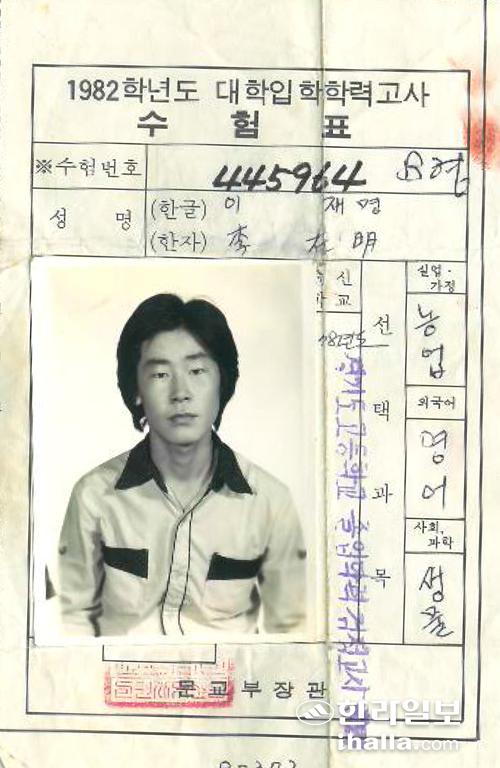 1982학년도 대학입학학력고사
수 험 표
※수험번호 445964 B형
성 명 (한글) 이 재명
(한자) 李 在明
출신
학교
선택과목
실업·
가정
농업
외국어
영어
사회,
과학
생물
82년도
경기도 고등학교 졸업학력 검정고시
문교부장관
한라일보
ihalla.com